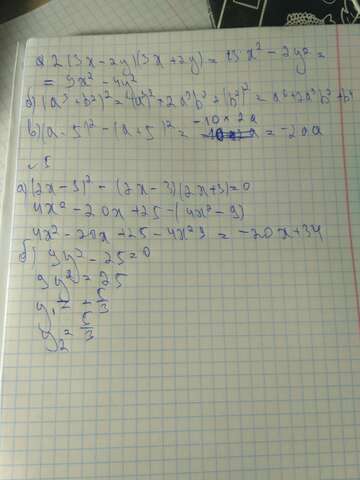 2(3x-2y)(3x+2y)=3x²-2y²=
=9x²-4y²
б)(a³+b²)²=(a³)²+2a³b²+(b²)²=a⁶+2a³b²+b⁴
в)(a-5)²-(a+5)²=-10×2a=-20a
5
а)(2x-5)²-(2x-3)(2x+3)=0
4x²-20x+25-(4x²-9)
4x²-20x+25-4x²9=-20x+34
б) 9y²-25=0
9y²=25
y₁=+5/3
y₂=5/3